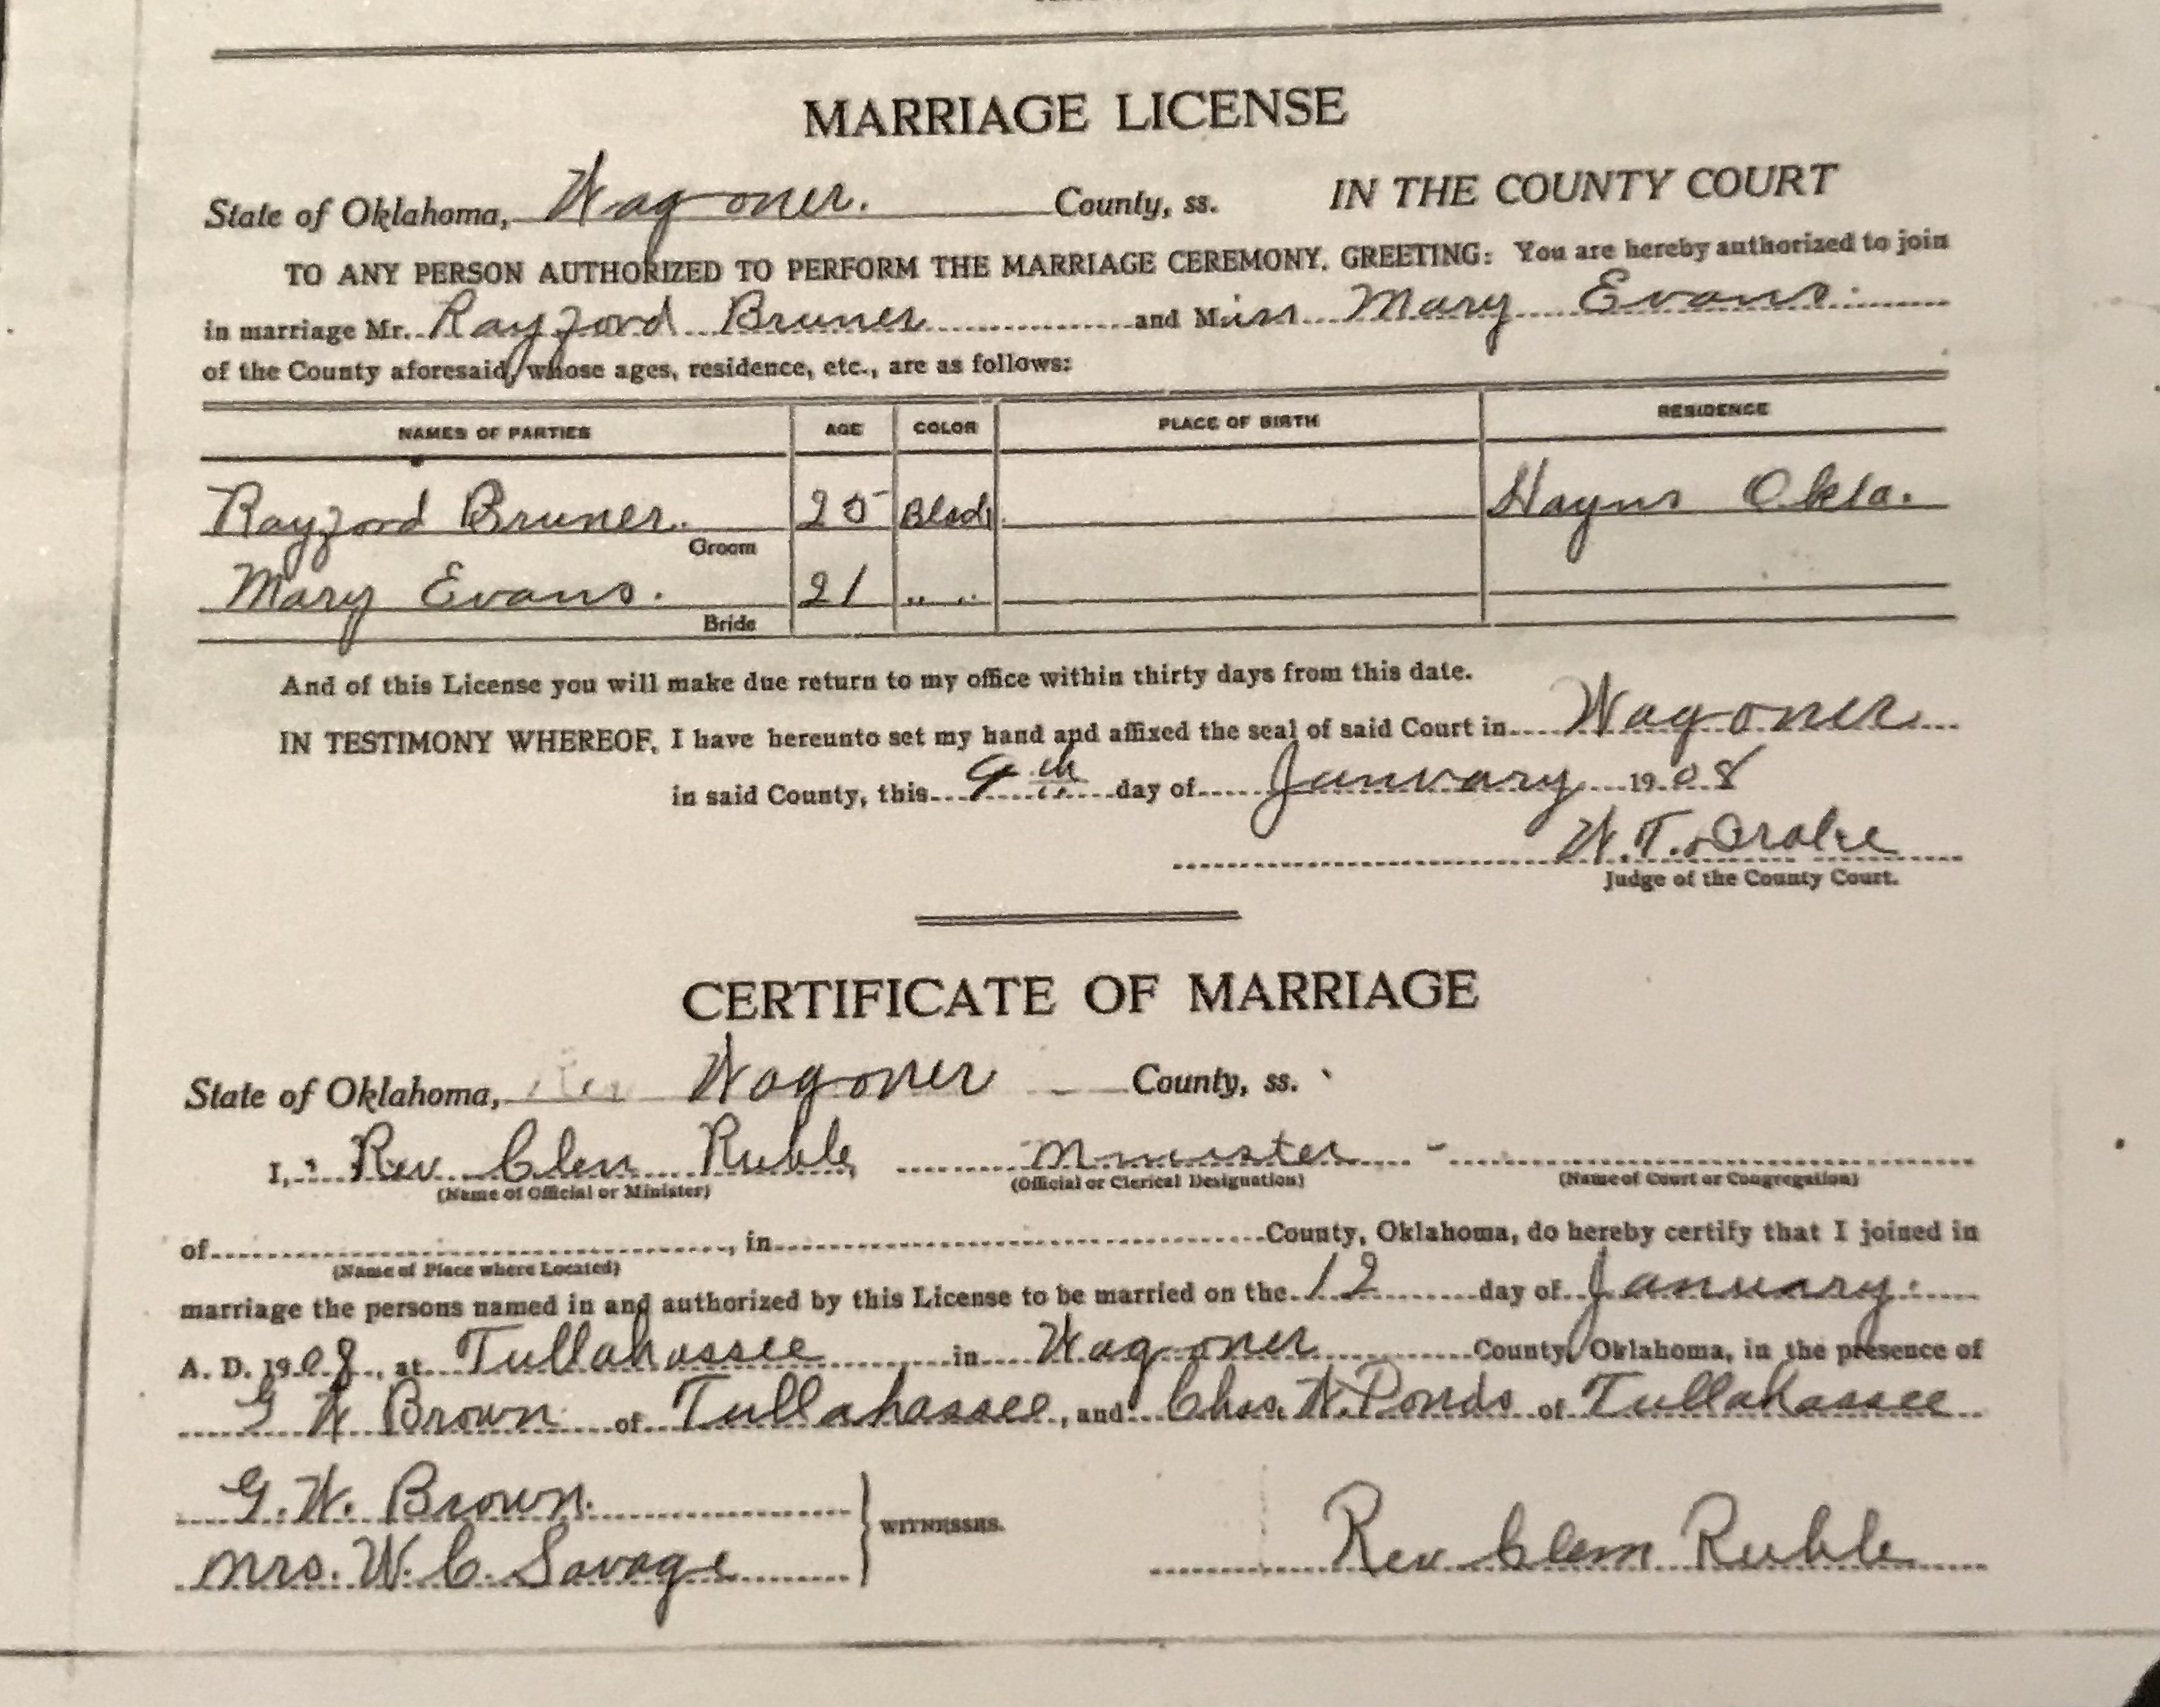 MARRIAGE LICENSE
State of Oklahoma, Wagoner. County, ss. IN THE COUNTY COURT
TO ANY PERSON AUTHORIZED TO PERFORM THE MARRIAGE CEREMONY, GREETING: You are hereby authorized to join
in marriage Mr. Rayford Bruner and Miss Mary Evans.
of the County aforesaid, whose ages, residence, etc., are as follows:
NAMES OF PARTIES AGE COLOR PLACE OF BIRTH RESIDENCE
Rayford Bruner. 25 Black Hayns Okla.
Groom
Mary Evans. 21 " "
Bride
And of this License you will make due return to my office within thirty days from this date.
IN TESTIMONY WHEREOF, I have hereunto set my hand and affixed the seal of said Court in Wagoner
in said County, this 9th day of January 1908
W.T. Drake
Judge of the County Court.
CERTIFICATE OF MARRIAGE
State of Oklahoma, Wagoner County, ss.
I, Rev Clem Ruble, Minister -
(Name of Official or Minister) (Official or Clerical Designation) (Name of Court or Congregation)
of , in County, Oklahoma, do hereby certify that I joined in
(Name of Place where Located)
marriage the persons named in and authorized by this License to be married on the 12 day of January.
A. D. 1908, at Tullahassee in Wagoner County, Oklahoma, in the presence of
G W Brown of Tullahassee, and Chas. W. Ponds of Tullahassee
G. W. Brown.
WITNESSES.
Mrs. W. C. Savage Rev Clem Ruble